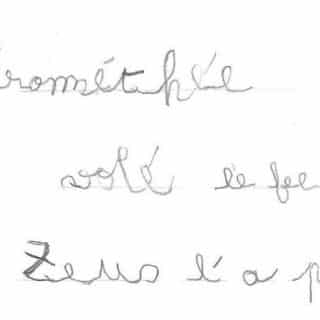 Prométhée
volé le feu
Zeus l'a p